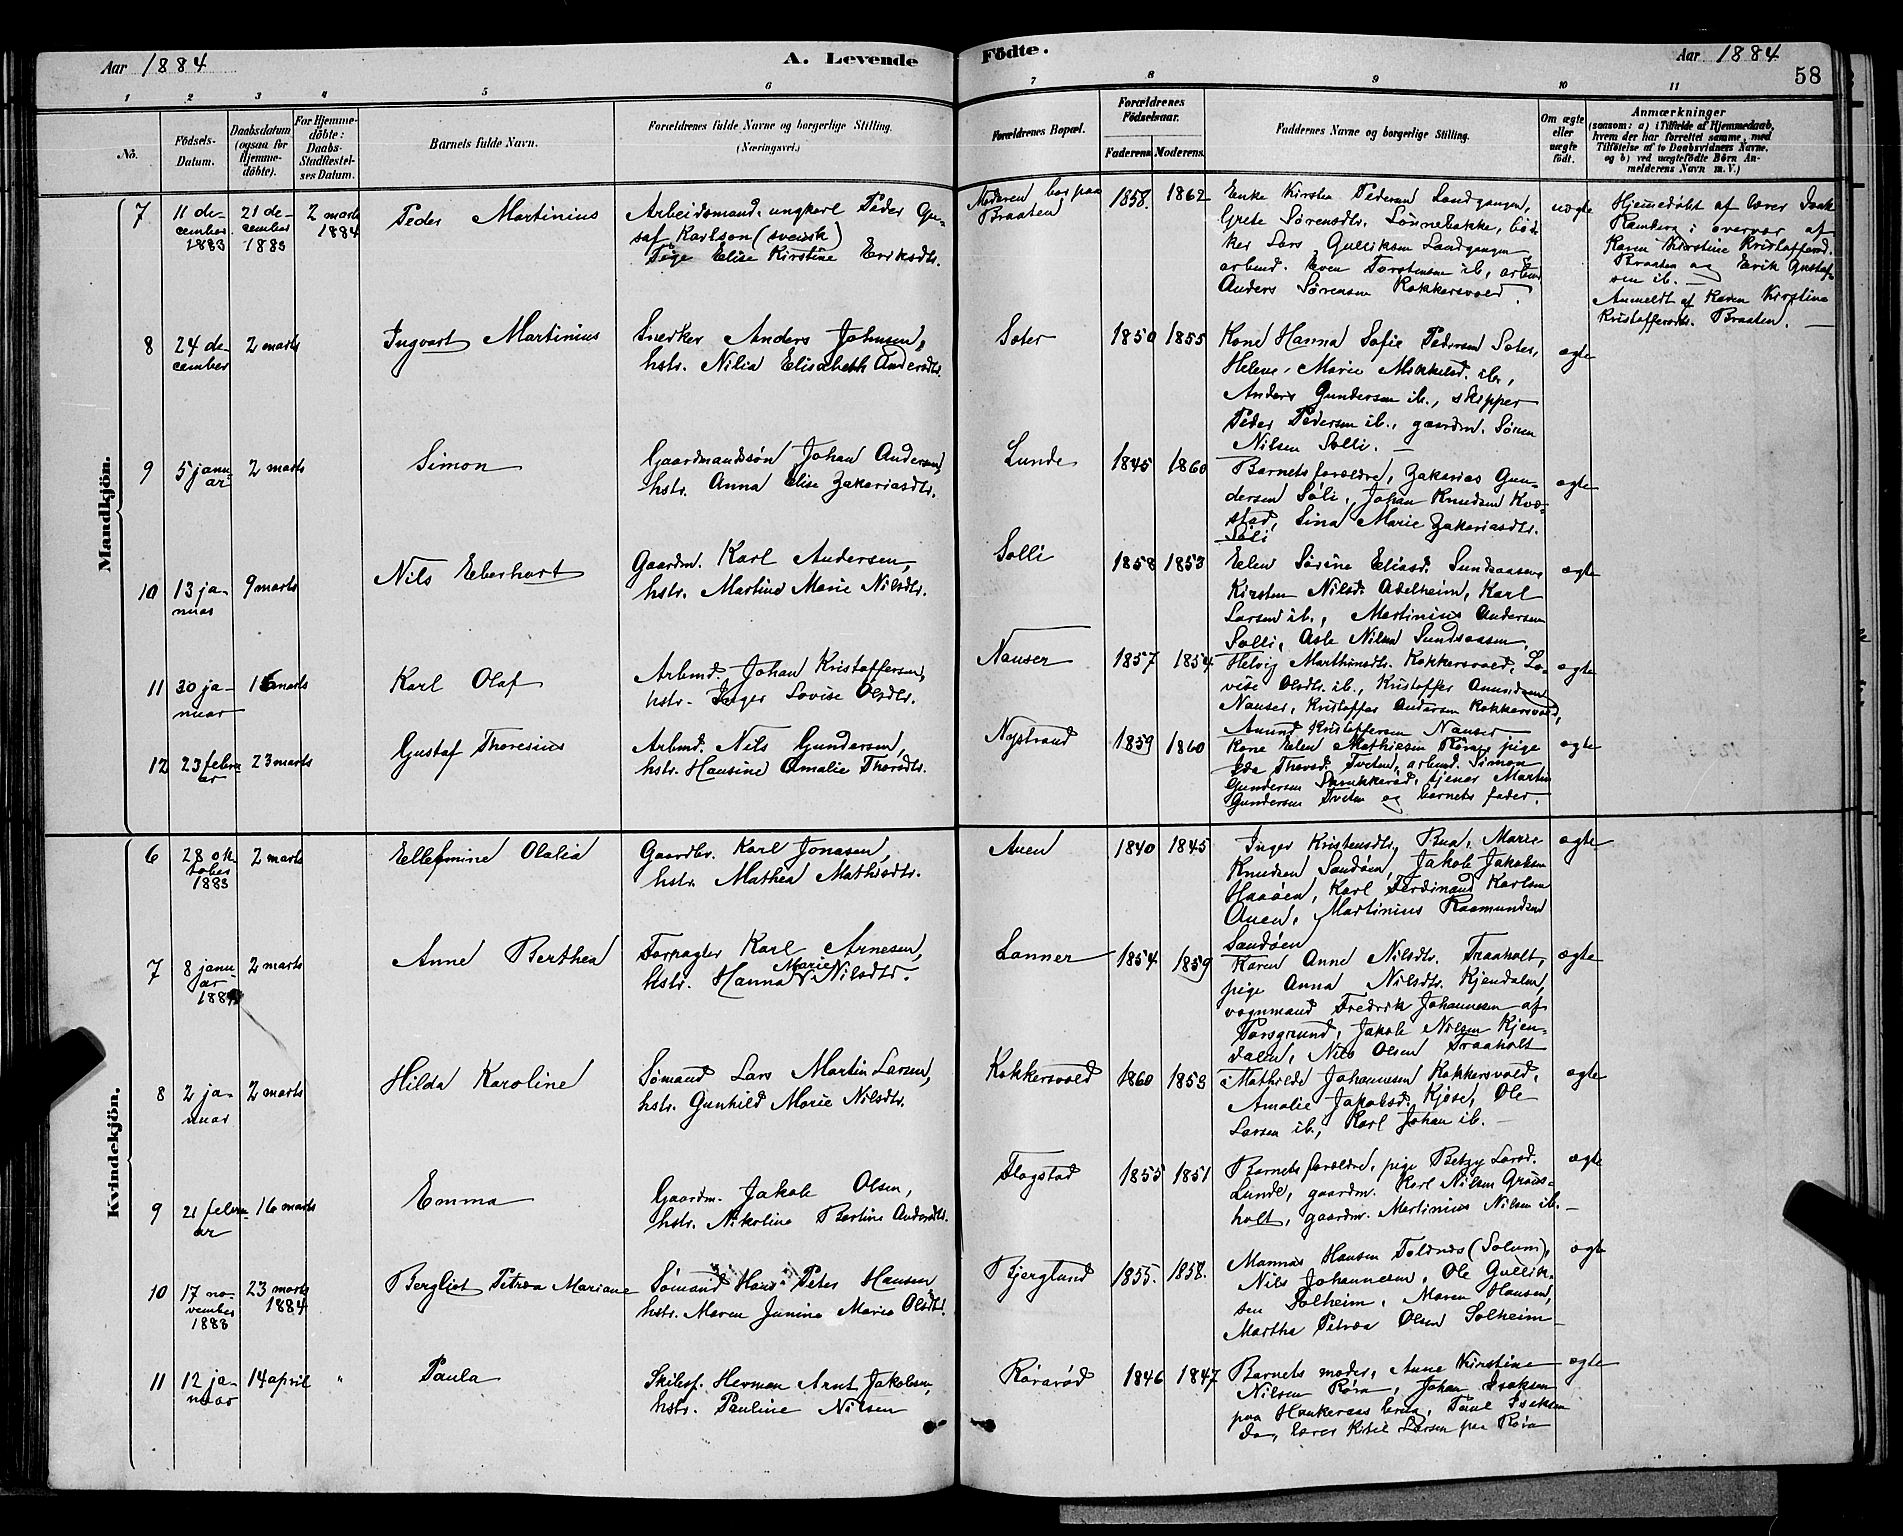 Aar 1884
A. Levende
Födte.
Aar 1884
58
1 2 3 4 5 6 7 8 9 10 11
No.
Födsels-
Datum.
Daabsdatum
(ogsaa for
Hjemme-
döbte).
For Hjemme-
döbte:
Daabs-
Stadfæstel-
ses Datum.
Barnets fulde Navn.
Forældrenes fulde Navne og borgerlige Stilling.
(Næringsvei.)
Forældrenes Bopæl.
Forældrenes
Födselsaar.
Faderens. Moderens.
Faddernes Navne og borgerlige Stilling.
Om ægte
eller
uægte
födt.
Anmærkninger
(saasom: a) i Tilfælde af Hjemmedaab,
hvem der har forrettet samme, med
Tilföielse af to Daabsvidners Navne,
og b) ved uægtefödte Börn An-
melderens Navn m. V.)
Mandkjön.
7
11 de-
cember
1883
21 de-
cember
1883
2 marts
1884
Peder Martinius
Arbeidsmand, ungkarl Peder Gu-
saf Karlson (svensk)
Pige Elise Kirstine Eriksdtr.
Moderen bor paa
Braaten
1858. 1862
Enke Kirsten Pedersen Landgangen,
Grete Sørensdtr. Sønnebakke, bød-
ker Lars Gulliksen Landgangen,
arbmd. Even Torstensen ib., arbmd.
Anders Sørensen Kokkersvold.
uægte
Hjemmedøbt af lærer Isak
Ramberg i overvær af
Karen Kirstine Kristoffersd.
Braaten og Erik Gustaf-
sen ib. —
Anmeldt af Karen Kirstine
Kristoffersdtr. Braaten. —
8
24 de-
cember
2 marts
Ingvart Martinius
Snerker Anders Johnsen,
hstr. Nilia Elisabeth Andersdtr.
Soter
1850 1855
Kone Hanna Sofie Pedersen Soter,
Helene Marie Mikkelsd. ib.,
Anders Gundersen ib., skipper
Peder Pedersen ib., gaardm. Søren
Nilsen Solli. —
ægte
9
5 janu-
ar
2 marts
Simon
Gaardmandssøn Johan Andersen,
hstr. Anna Elise Zakariasdtr.
Lunde
1845 1860
Barnets forældre, Zakarias Gun-
dersen Søli, Johan Knudsen Kvæ-
stad, Lina Marie Zakariasdtr.
Søli
ægte
10
13 ja-
nuar
9 marts
Nils Eberhart
Gaardm. Karl Andersen,
hstr. Martine Marie Nilsdtr.
Solli
1858 1853
Elen Sørine Eliasd. Sundsaasen,
Kirsten Nilsd. Adelheim, Karl
Larsen ib., Martinius Andersen
Solli, Asle Nilsen Sundsaasen.
ægte
11
30 ja-
nuar
16 marts
Karl Olaf
Arbmd. Johan Kristoffersen,
hstr. Inger Lovise Olsdtr.
Nauser
1857 1854
Helvig Marthinsdtr. Kokkersvold, Lo-
vise Olsdtr. ib., Kristoffer Amundsen
Nauser, Kristoffer Andersen Kokkersvold,
Amund Kristoffersen Nauser
ægte
12
23 febru-
ar
23 marts
Gustaf Thoresius
Arbmd. Nils Gundersen,
hstr. Hansine Amalie Thorsdtr.
Nystrand
1859 1860
Kone Elen Mathiesen Rører, pige
Ida Thorsd. Tveten, arbmd. Simon
Gundersen Skrukkerød, tjener Martin
Gundersen Tveten og barnets fader. —
ægte
Kvindekjön.
6
28 ok-
tober
1883
2 marts
Ellefmine Olalia
Gaardbr. Karl Jonasen,
hstr. Mathea Mathisdtr.
Auen
1840 1845
Inger Kristensdtr. Bua, Marie
Knudsen Sandøen, Jakob Jakobsen
Haaøen, Karl Ferdinand Karlsen
Auen, Martinius Rasmundsen
Sandøen
ægte
7
8 janu-
ar
1884
2 marts
Anne Berthea
Forpagter Karl Arnesen,
hstr. Hanna Marie Nilsdtr.
Lanner
1854 1859
Karen Anne Nilsdtr. Traaholt,
pige Anna Nilsdtr. Kjendalen,
vognmand Fredrik Johannesen af
Porsgrund, Jakob Nilsen Kjen-
dalen, Nils Olsen Traaholt
ægte
8
2 ja-
nuar
2 marts
Hilda Karoline
Sømand Lars Martin Larsen,
hstr. Gunhild Marie Nilsdtr.
Kokkersvold
1860 1853
Mathilde Johannesen Kokkersvold,
Amalie Jakobsd. Kjøse, Ole
Larsen ib., Karl Johan ib. —
ægte
9
21 febru-
ar
16 marts
Emma
Gaardm. Jakob Olsen,
hstr. Nikoline Bertine Andersdtr.
Flogstad
1855 1851
Barnets forældre, pige Betzy Larsd.
Lunde, gaardm. Karl Nilsen Graas-
holt, gaardm. Martinius Nilsen ib. —
ægte
10
17 no-
vember
1883
23 marts
1884
Bergliot Petræa Mariane
Sømand Hans Peter Hansen
hstr. Maren Janine Marie Olsdtr.
Bjerglund
1855. 1858.
Mannas Hansen Foldnæs (Solum),
Nils Johannesen, Ole Gullik-
sen Solheim, Maren Hansen,
Martha Petræa Olsen Solheim
ægte
11
12 ja-
nuar
14 april
"
Paula
Skibsf. Herman Arnt Jakobsen,
hstr. Pauline Nilsen
Rørarød
1846 1847
Barnets moder, Anne Kirstine
Nilsen Røra, Johan Isaksen
paa Paul Isaksen
do, lærer Kitil Larsen paa Røra
ægte